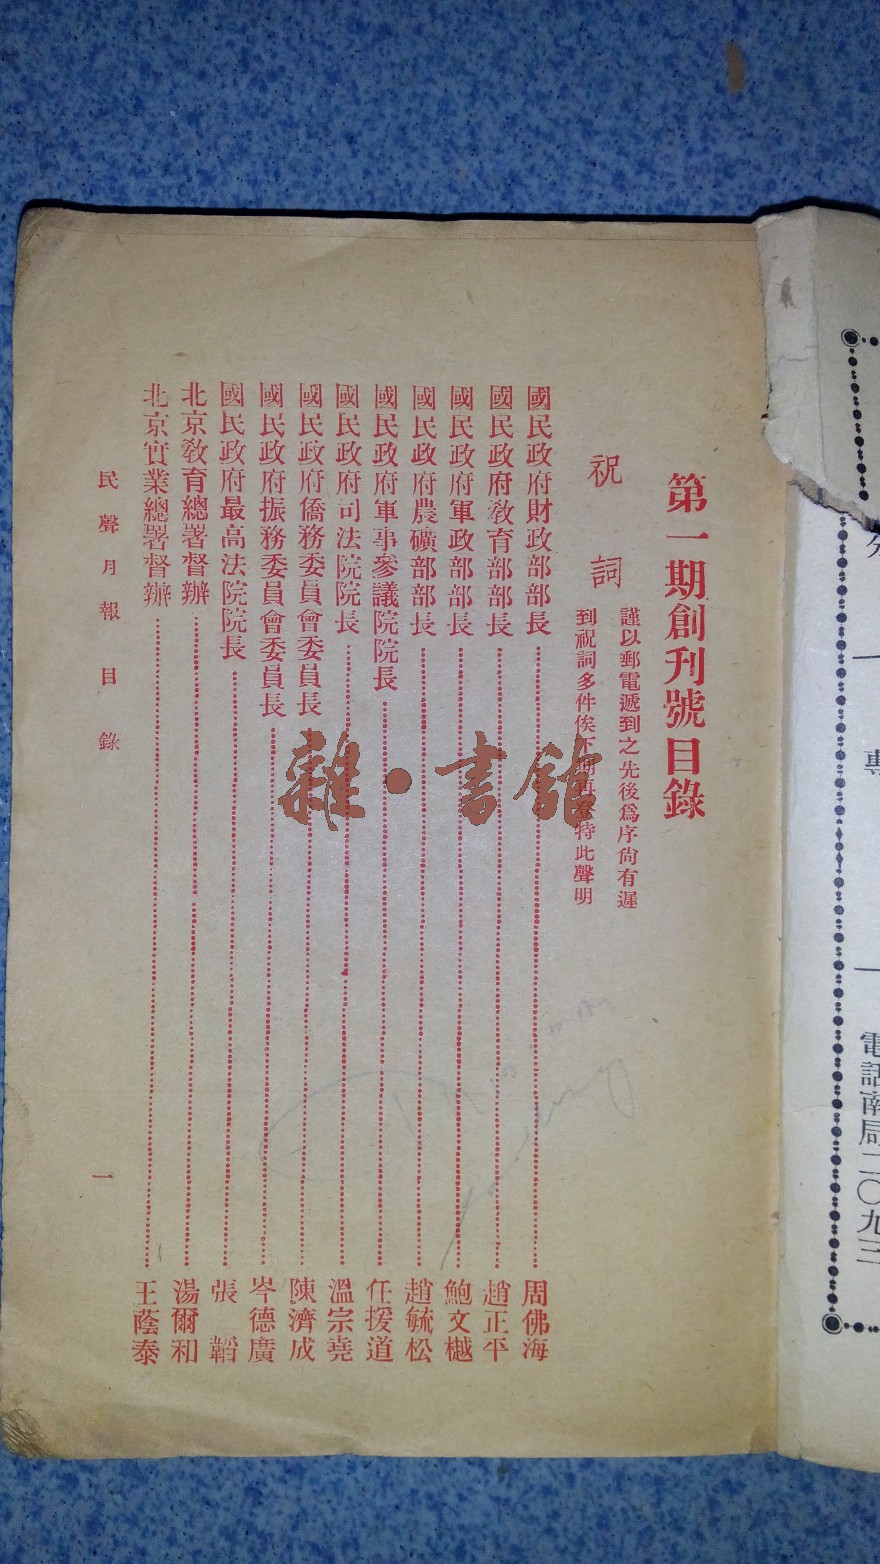 第一期創刊號目錄
祝詞
謹以郵電遞到之先後爲序尙有遲
到祝詞多件俟下期再登特此聲明
國民政府財政部部長 周佛海
國民政府敎育部部長 趙正平
國民政府軍政部部長 鮑文樾
國民政府農礦部部長 趙毓松
國民政府軍事參議院院長 任援道
國民政府司法院院長 溫宗堯
國民政府僑務委員會委員長 陳濟成
國民政府振務委員會委員長 岑德廣
國民政府最高法院院長 張韜
北京敎育總署督辦 湯爾和
北京實業總署督辦 王蔭泰
民聲月報 目錄
一
雜·書館
電話南局二〇九三
專